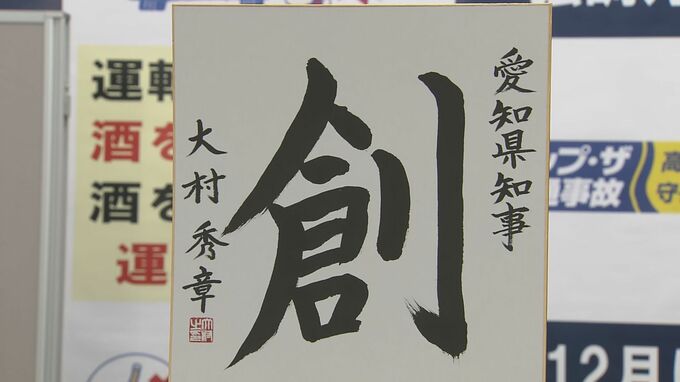 愛知県知事
創
大村秀章
運転
酒を
酒を
運
ップ・ザ
通事故
高
守
12月